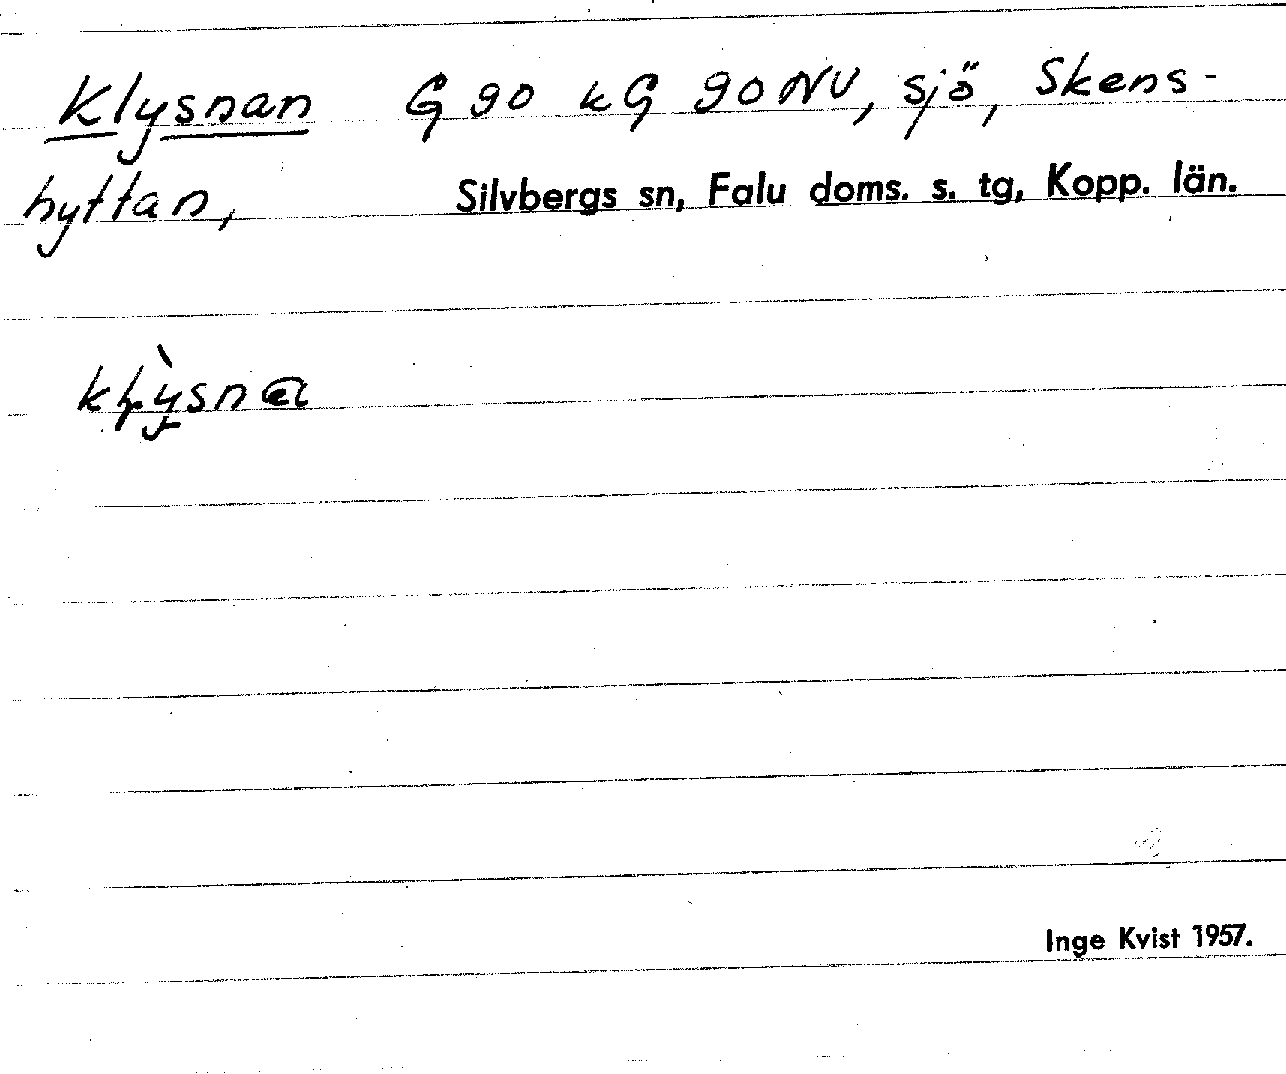 Klysnan G 90 kG 90 NV, sjö, Skens-
hyttan, Silvbergs sn, Falu doms. s. tg, Kopp. län.
Inge Kvist 1957.